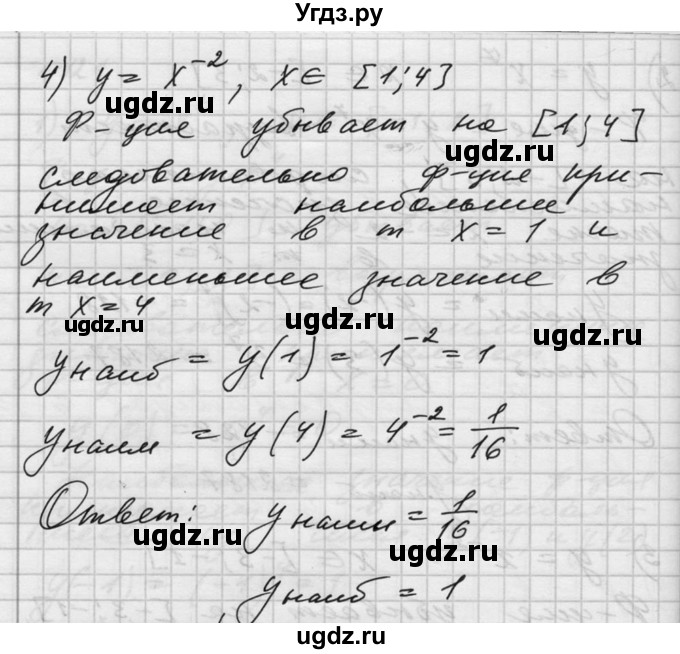 Угдз.ру
4) y = x⁻², x ∈ [1; 4]
ugdz.ru
ugdz.ru
Ф-ция убывает на [1; 4]
следовательно ф-ция при-
нимает наибольшее
значение в т x = 1 и
наименьшее значение в
т x = 4
ugdz.ru
ugdz.ru
ugdz.ru
y наиб = y(1) = 1⁻² = 1
y наим = y(4) = 4⁻² = 1/16
ugdz.ru
ugdz.ru
Ответ: y наим = 1/16
ugdz.ru
ugdz.ru
y наиб = 1
ugdz.ru
ugdz.ru
ugdz.ru